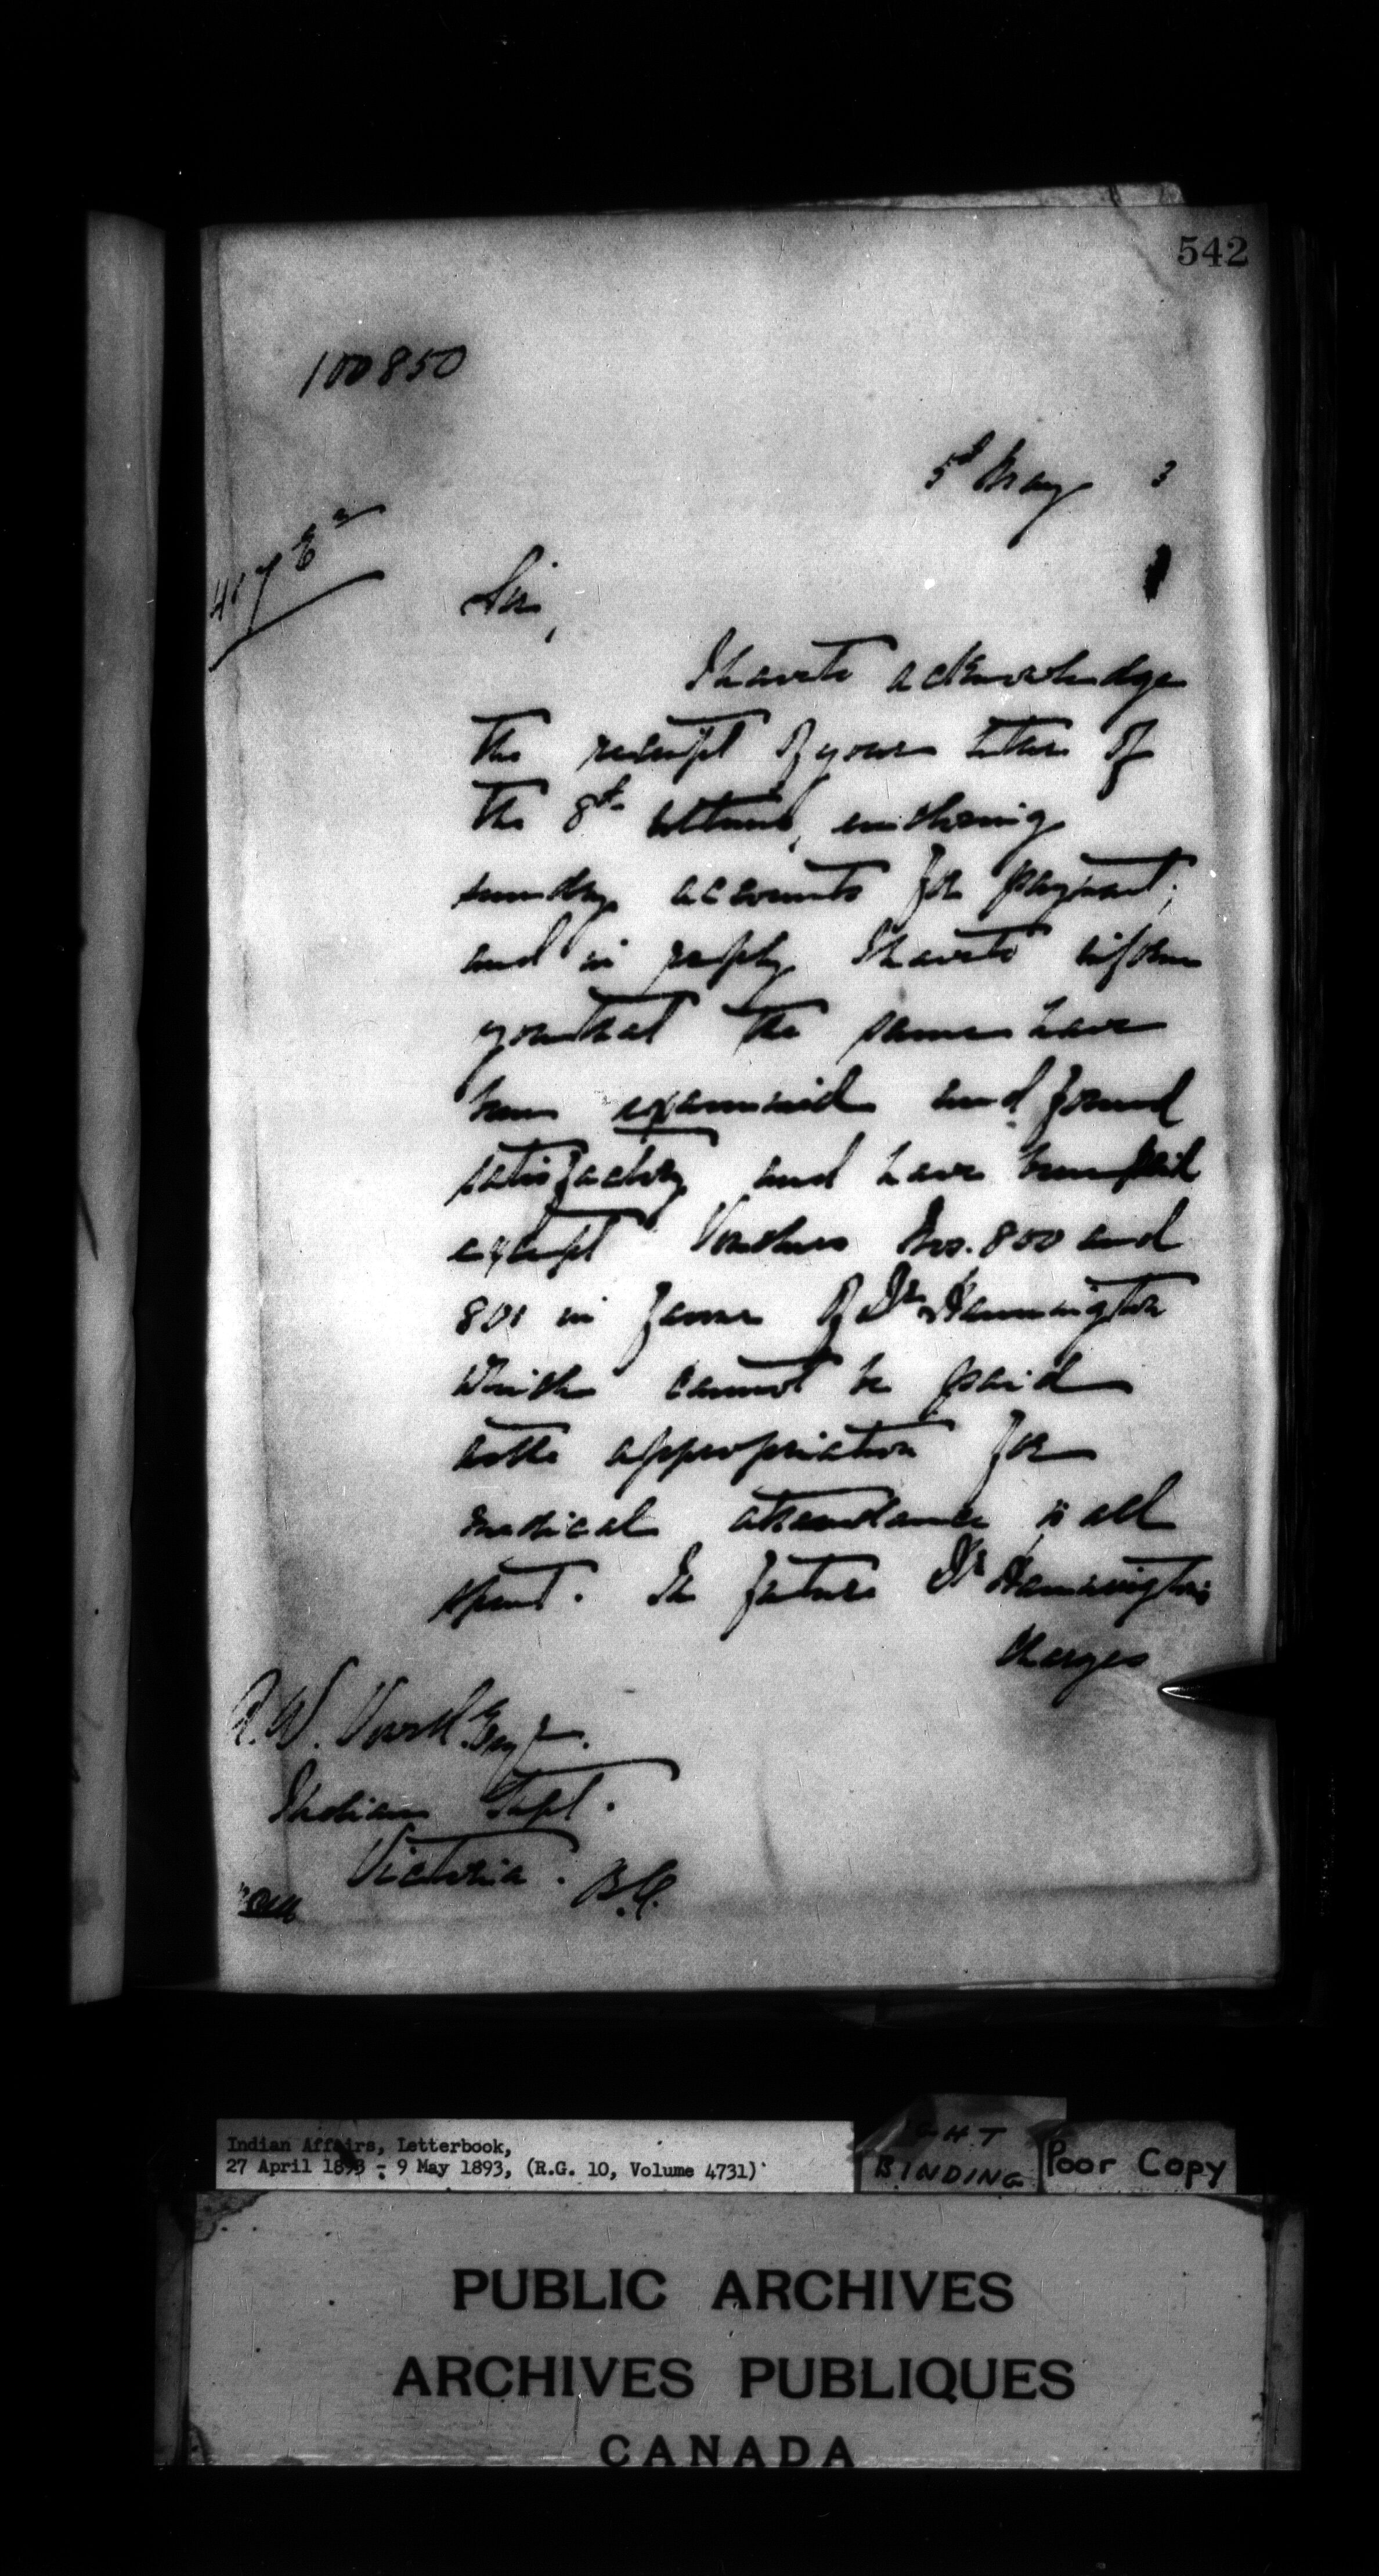 542
100850
5th May 3
417
Sir,
I have to acknowledge
the receipt of your letter of
the 8th ultimo, enclosing
sundry accounts for payment;
and in reply I have to inform
you that the same have
been examined and found
satisfactory and have been paid
except Vouchers Nos. 800 and
801 in favor of Dr. Hannington
which cannot be paid
as the appropriation for
medical attendance is all
spent. In future Dr Hannington's
charges
A.W. Vowell. Esqr.
Indian Supt.
Victoria. B.C.
Indian Affairs, Letterbook,
27 April 1893 - 9 May 1893, (R.G. 10, Volume 4731)
BINDING
Poor Copy
PUBLIC ARCHIVES
ARCHIVES PUBLIQUES
CANADA